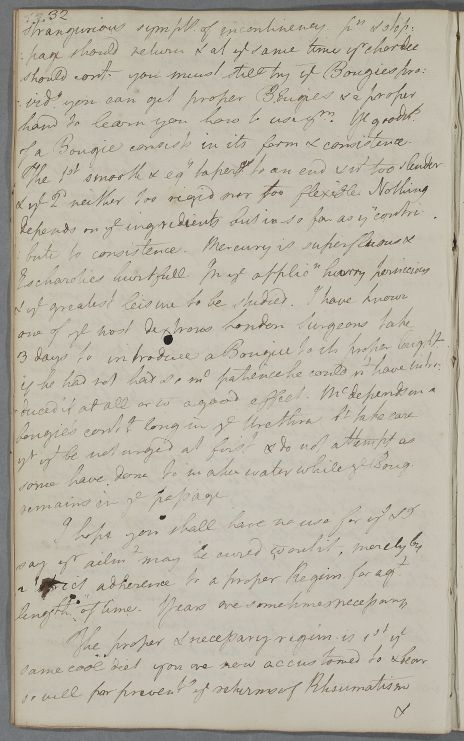 32
strangurious sympts. of incontinency pn & stop-
page should return & at ye same time ye chordee
should contn. you must still try ye Bougies pro:
vidd. you can get proper Bougies & a proper
hand to learn you how to use ym. Ye goodns.
of a Bougie consist in its form & consistence.
The 1st smooth & eqy taperg to an end & wt. too slender
& ye 2d neither too rigid nor too flexible Nothing
depends on ye ingredients but in so far as yy contri
bute to consistence. Mercury is superfluous &
Escharotics hurtfull In ye applicn hurry pernicious
& ye greatest leisure to be studied. I have known
one of ye most dextrous London Surgeons take
3 days to introduce a Bougie to its proper lenght
if he had not had so mc patience he could nt have intro
duced it at all or wt a good effect. Mc depends on a
bougies contg long in ye Urethra bt take care
yt it be not urged at first & do not attempt as
some have done to make water while ye Boug
remains in ye passage
I hope you shall have no use for it & I
say yr ailmt may be cured without, merely by
a strict adherence to a proper Regim. for a gt
length of time. Years are sometimes necessary
The proper & necessary regim. is 1st ye
same cool diet you are now accustomed to & bear
so well for preventg ye returns of Rheumatism
&